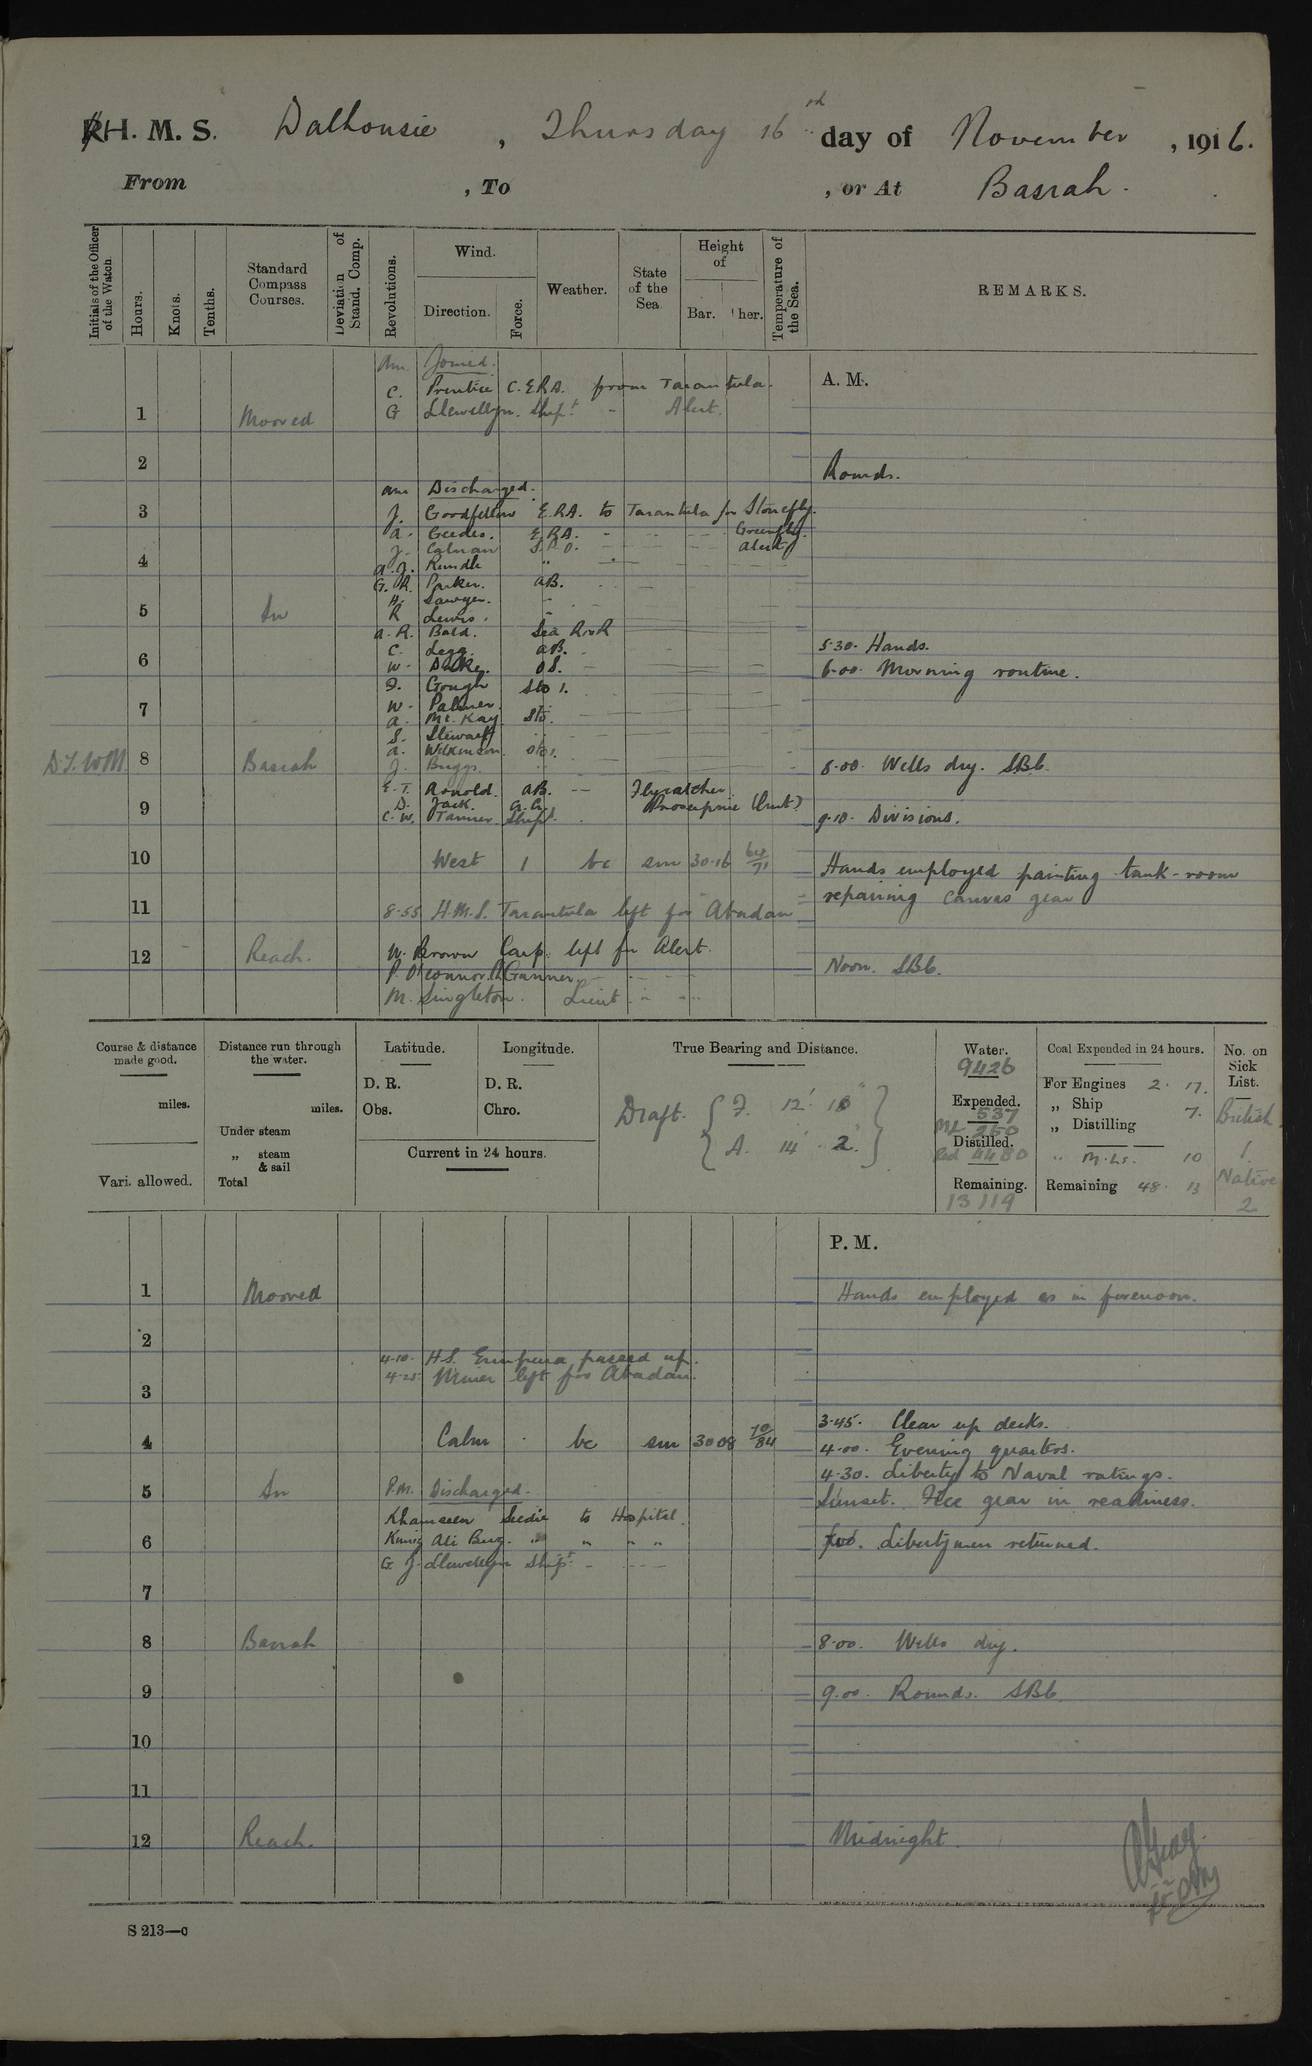 H. M. S. Dalhousie , Thursday 16 day of November , 1916.
From , To , or At Basrah.
Initials of the Officer of the Watch.
Hours.
Knots.
Tenths.
Standard Compass Courses.
Deviation of Stand. Comp.
Revolutions.
Wind.
Direction.
Force.
Weather.
State of the Sea
Height of
Bar.
her.
Temperature of the Sea.
REMARKS.
A. M.
am Joined.
C. Prentice C.E.R.A. from Tarantula.
1 Moored G Llewellyn. Shipt - Alert.
2 Rounds.
am Discharged.
3 J. Goodfellow E.R.A. to Tarantula for Stonefly.
A. Geedes. E.R.A. - Greenfly.
J. Calnan S.P.O. - Alert
4 A. J. Rundle "
G. R. Parker. AB.
H. Sawyer.
5 In R Lewis.
A. R. Bald. Sea RNR
5.30. Hands.
C. Legg. AB.
6 W. OS. -
6.00. Morning routine.
F. Gough Sto 1.
7 W. Palmer.
A. Mc. Kay Sto.
S. Stewart
A. Wilkinson. Sto 1.
8 Basrah J. Buggs.
8.00. Wells dry. SBb.
E. T. Ronold. AB. -- Flycatcher
9 D. Jack.
C. W. Tanner. Shipt.
9.10. Divisions.
10 West 1 bc sm 30.16 71
Hands employed painting tank-room
repairing canvas gear
11 8.55 H.M.S. Tarantula left for Abadan
12 Reach. W. Brown Carp. left for Alert.
P. O'Connor Gunner
Noon. SBb.
M. Singleton. Lieut
Course & distance made good.
miles.
Vari. allowed.
Distance run through the water.
miles.
Under steam
„ steam & sail
Total
Latitude.
D. R.
Obs.
Longitude.
D. R.
Chro.
Current in 24 hours.
True Bearing and Distance.
Draft. F. 12'
A. 14' 2"
Water.
9426
Expended.
537
ML 250
Distilled.
Rcd 4480
Remaining.
13119
Coal Expended in 24 hours.
For Engines 2. 17.
„ Ship 7.
„ Distilling
" M.Ls. 10
Remaining 48. 13
No. on Sick List.
British
1.
Native
2
P. M.
1 Moored Hands employed as in forenoon.
2
4.10. H.S. Erinpura passed up.
4.25 Miner left for Abadan.
3
3.45. Clear up decks.
4 Calm . bc sm 30.08 70/84
4.00. Evening quarters.
4.30. Liberty to Naval ratings.
5 In P.M. Discharged.
Sunset. Fire gear in readiness.
Khamseen Seedie to Hospital.
6 Ali " " " "
Libertymen returned.
G J. Llewellyn Shipt. -
7
8 Basrah 8.00. Wells dry.
9 9.00. Rounds. SBb.
10
11
12 Reach. Midnight.
S 213—c